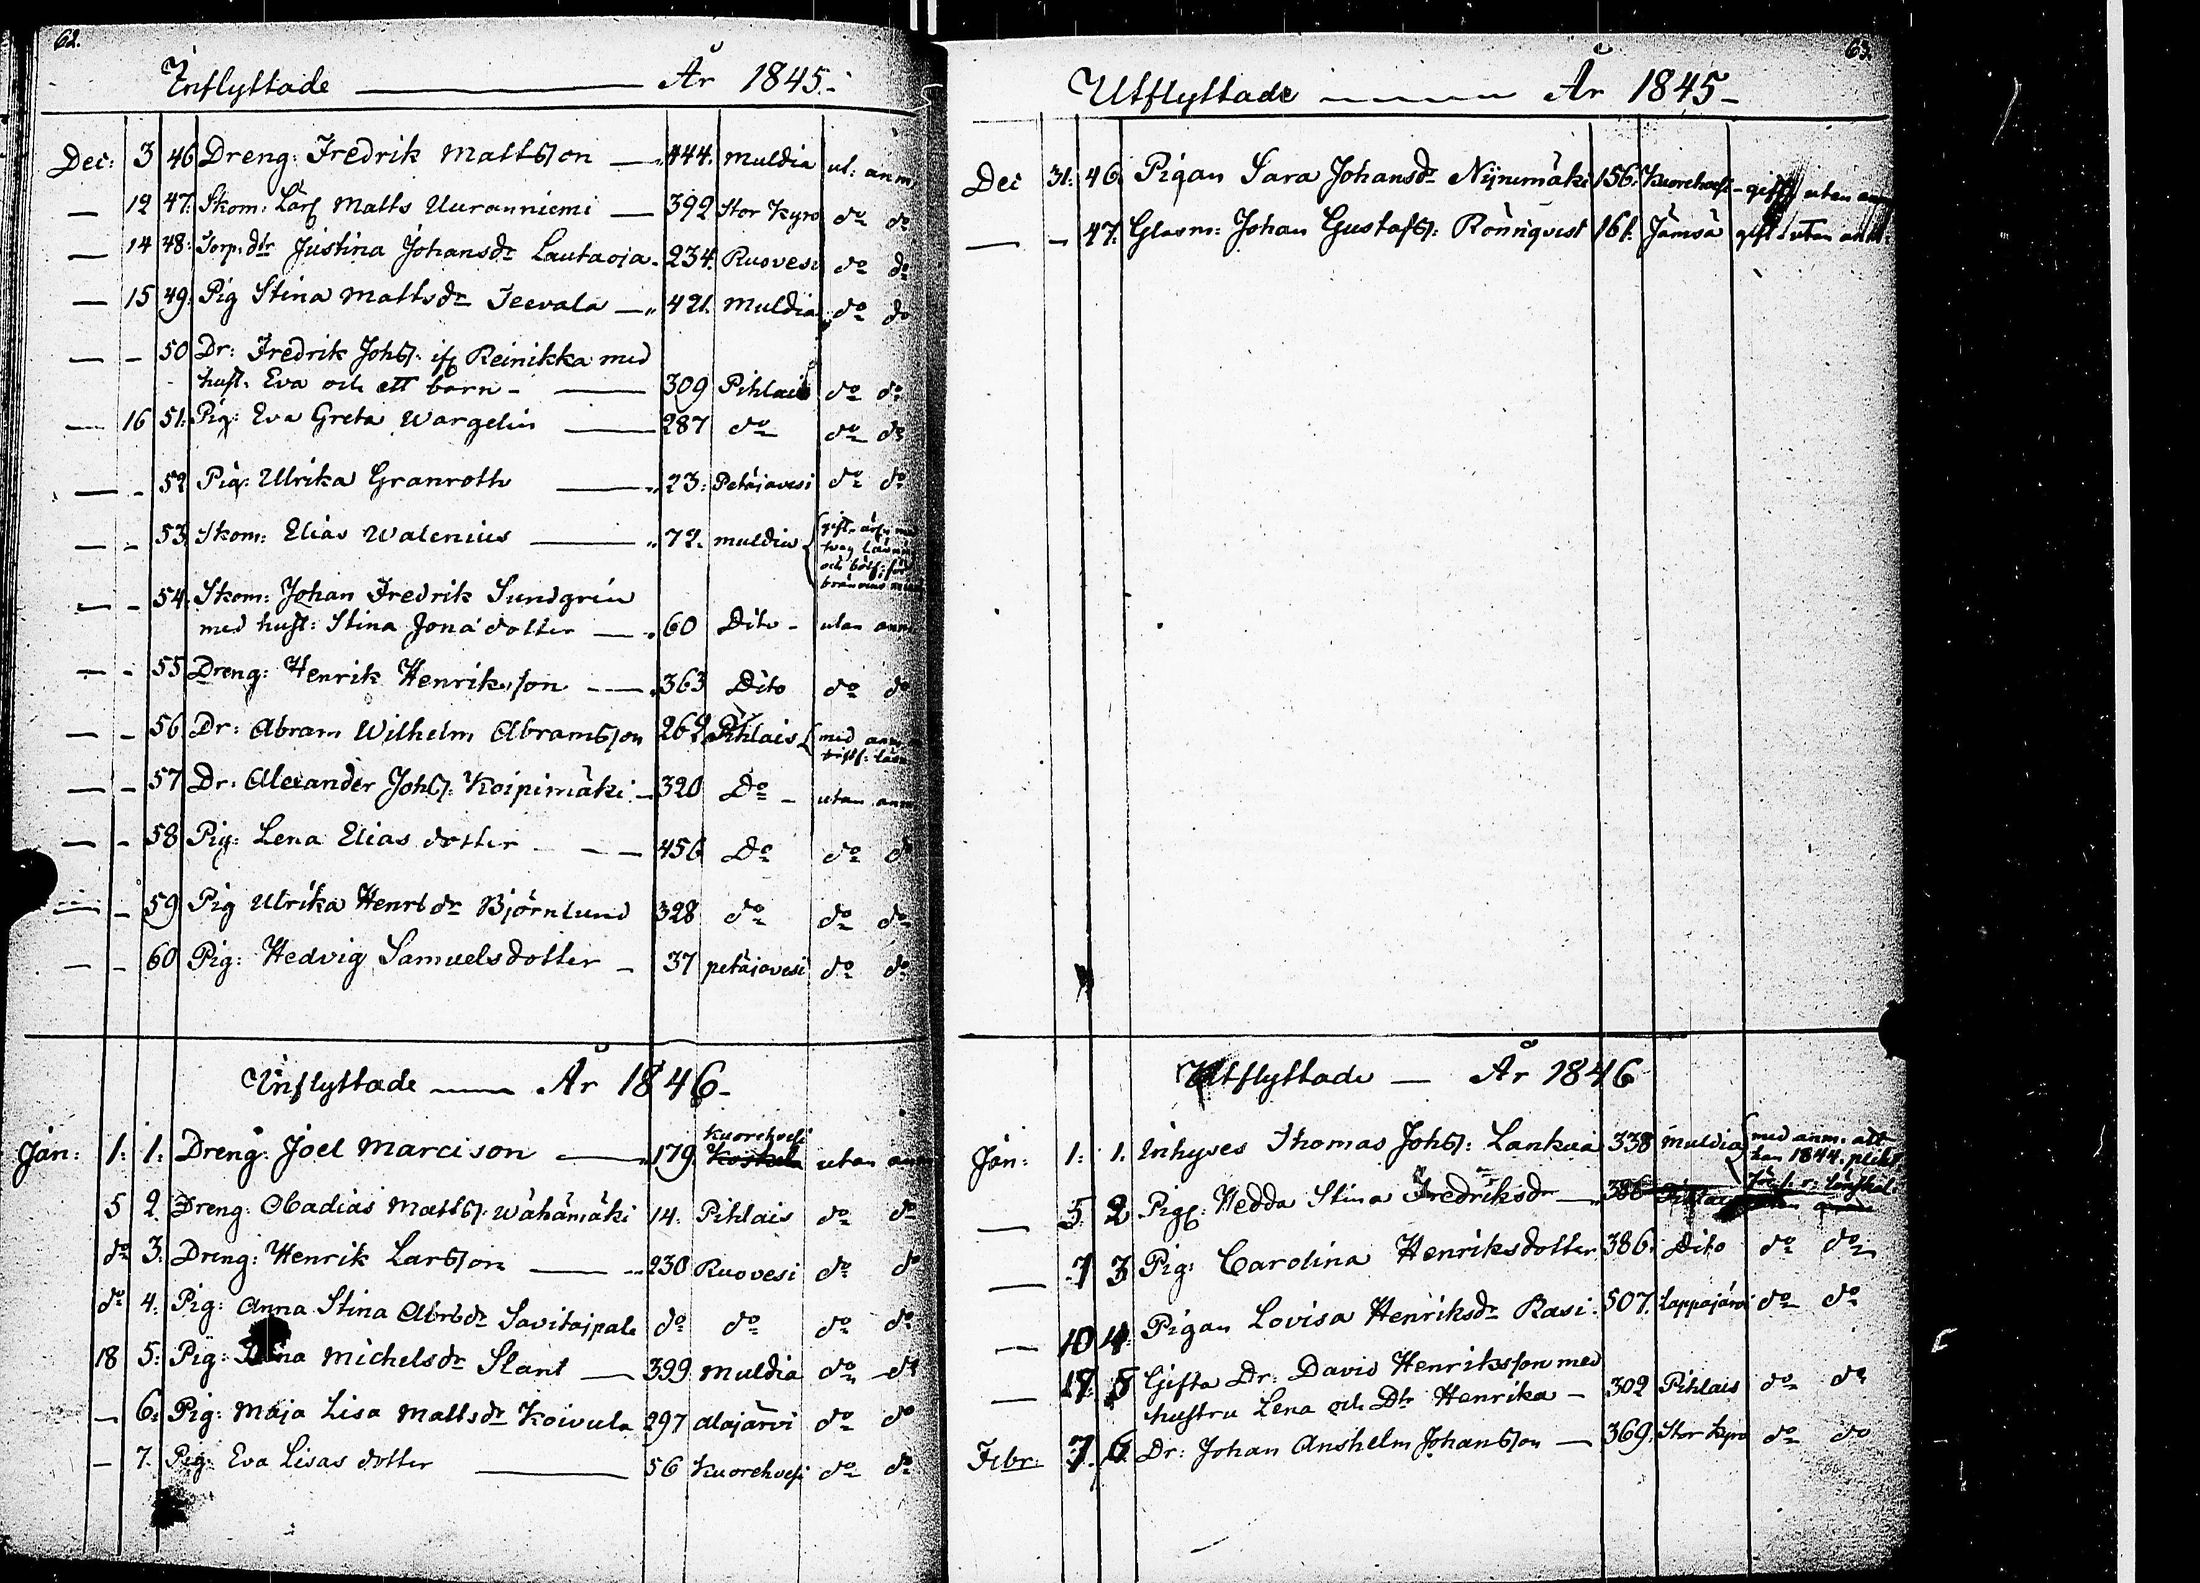 62.
Inflyttade — År 1845.
Dec: 3 46 Dreng: Fredrik Mattsson — 444. Muldia ut: anm
— 12 47. Skom: Lärl Matts Uuranniemi — 392 Stor Kyro do do
— 14 48: Torp: dtr Justina Johansdr Lautaoja. 234. Ruovesi do do
— 15 49. Pig Stina Mattsdr Teevala — 421. Muldia do do
— - 50 Dr: Fredrik Johss: ifr Reinikka med
hust. Eva och ett barn - — 309 Pihlais do do
— 16 51: Pig: Eva Greta Wargelin — 287 do do do
— - 52 Pig: Ulrika Granroth — 23: Petäjävesi do do
— - 53. Skom: Elias Walenius — 72. muldia
— - 54. Skom: Johan Fredrik Sundgrén
med hust: Stina Jonádotter — 60 Dito - utan anm
— - 55 Dreng: Henrik Henriksson — 363 Dito do do
— - 56. Dr: Abram Wilhelm Abramsson 262 Pihlais med anm
— - 57 Dr: Alexander Johss: Koipimäki — 320 Do - utan anm
— - 58 Pig: Lena Elias dotter — 456 Do do do
— - 59 Pig Ulrika Henrs dr Björnlund 328 do do do
— - 60 Pig: Hedvig Samuelsdotter - 37 petäjävesi do do
Inflyttade — År 1846-
Kuorehvesi
Jan: 1: 1: Dreng: Joel Marcison — 179. Koskela utan anm
5 2. Dreng: Obadias Mattss: Wähämäki 14. Pihlais do do
do 3. Dreng: Henrik Larsson — 230 Ruovesi do do
do 4. Pig: Anna Stina Abrsdr Savitaipale do do do do
18 5: Pig: Michelsdr Slant — 399 Muldia do do
— 6: Pig: Maja Lisa Mattsdr Koivula 297 Alajärvi do do
— 7. Pig: Eva Lisas dotter — 56 Kuorehvesi do do
63.
Utflyttade — År 1845-
Dec 31: 46. Pigan Sara Johansdr Nynimäki 156. Kuorehvesi - gift utan anm
— - 47. Glasm: Johan Gustafss: Rönnqvist 161. Jämsä gift utan anm
Utflyttade — År 1846
Jan: 1: 1. Inhyses Thomas Johss: Lankua 338 Muldia med anm. att
han 1844. plikt
— 5 2 Pig: Hedda Stina Fredriksdr — 386
— 7 3 Pig: Carolina Henriksdotter 386. Dito do do
— 10 4. Pigan Lovisa Henriksdr Rasi. 507. Lappajärvi do do
— 17. 5 Gifta Dr: David Henriksson med
hustru Lena och Dtr Henrika - 302 Pihlais do do
Febr: 7. 6. Dr: Johan Anshelm Johansson — 369. Stor Kyro do do